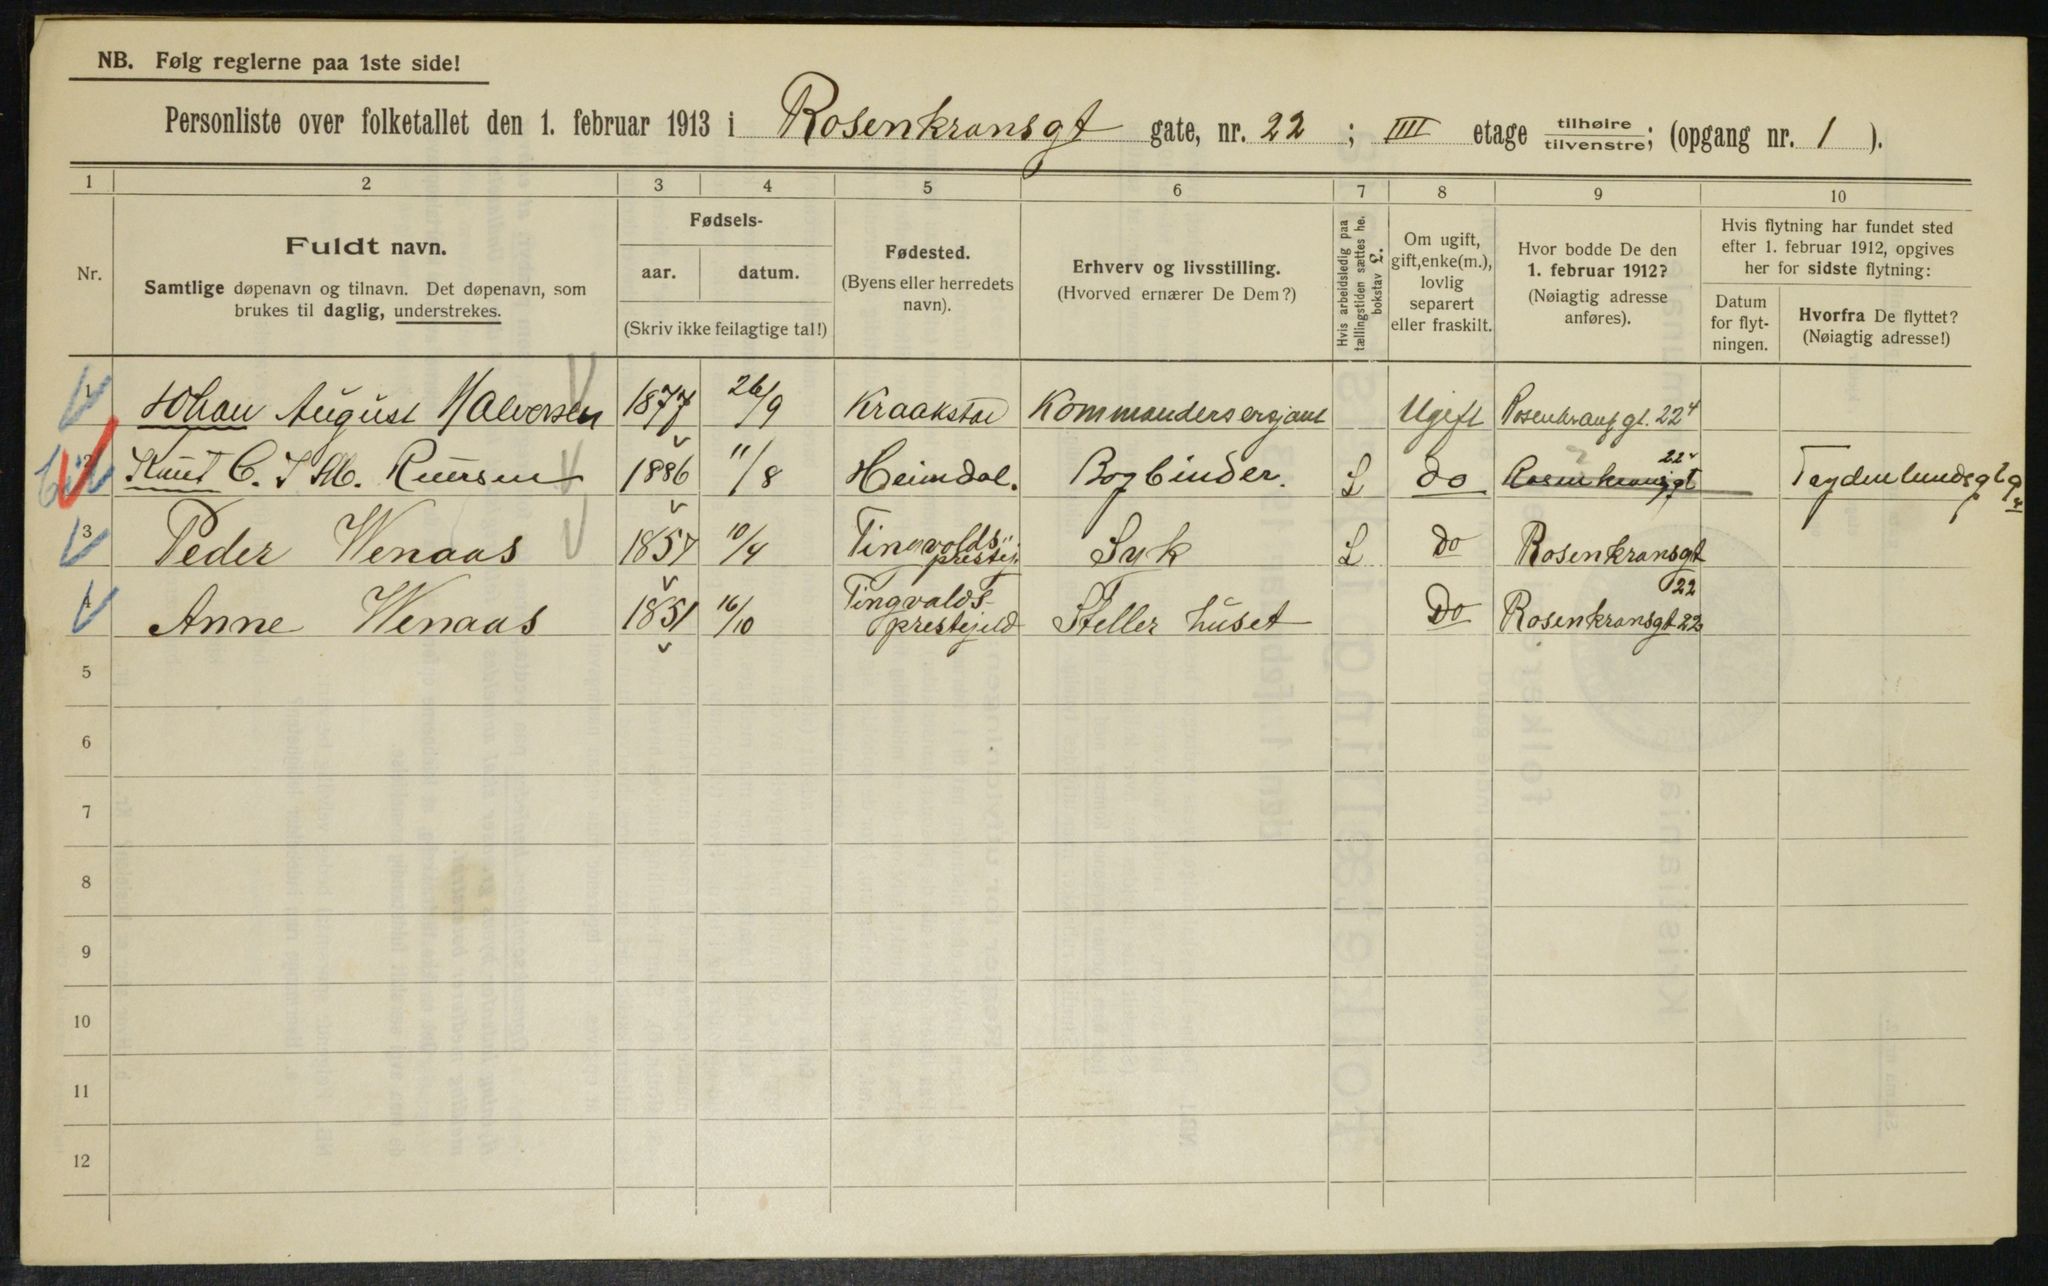 NB. Følg reglerne paa 1ste side!
Personliste over folketallet den 1. februar 1913 i Rosenkransgt gate, nr. 22 ; IIII etage tilhøire / tilvenstre; (opgang nr. 1 ).
1 2 3 4 5 6 7 8 9 10
Nr.
Fuldt navn.
Samtlige døpenavn og tilnavn. Det døpenavn, som
brukes til daglig, understrekes.
Fødsels-
aar. datum.
(Skriv ikke feilagtige tal!)
Fødested.
(Byens eller herredets
navn).
Erhverv og livsstilling.
(Hvorved ernærer De Dem?)
Hvis arbeidsledig paa
tællingstiden sættes her
bokstav L.
Om ugift,
gift, enke(m.),
lovlig
separert
eller fraskilt.
Hvor bodde De den
1. februar 1912?
(Nøiagtig adresse
anføres).
Hvis flytning har fundet sted
efter 1. februar 1912, opgives
her for sidste flytning:
Datum
for flyt-
ningen.
Hvorfra De flyttet?
(Nøiagtig adresse!)
1 Johan August Halvorsen 1877 26/9 Kraakstad Kommandersersjant Ugift Rosenkransgt. 22 4
2 Knut C. I. M. 1886 11/8 Heimdal. Bogbinder. L do Rosenkransgt 22
3 Peder Wenaas 1857 10/4 Tingvolds prestej. Syk L Do Rosenkransgt 22
4 Anne Wenaas 1851 16/10 Tingvalds- prestejeld Steller huset Do Rosenkransgt 22
5
6
7
8
9
10
11
12